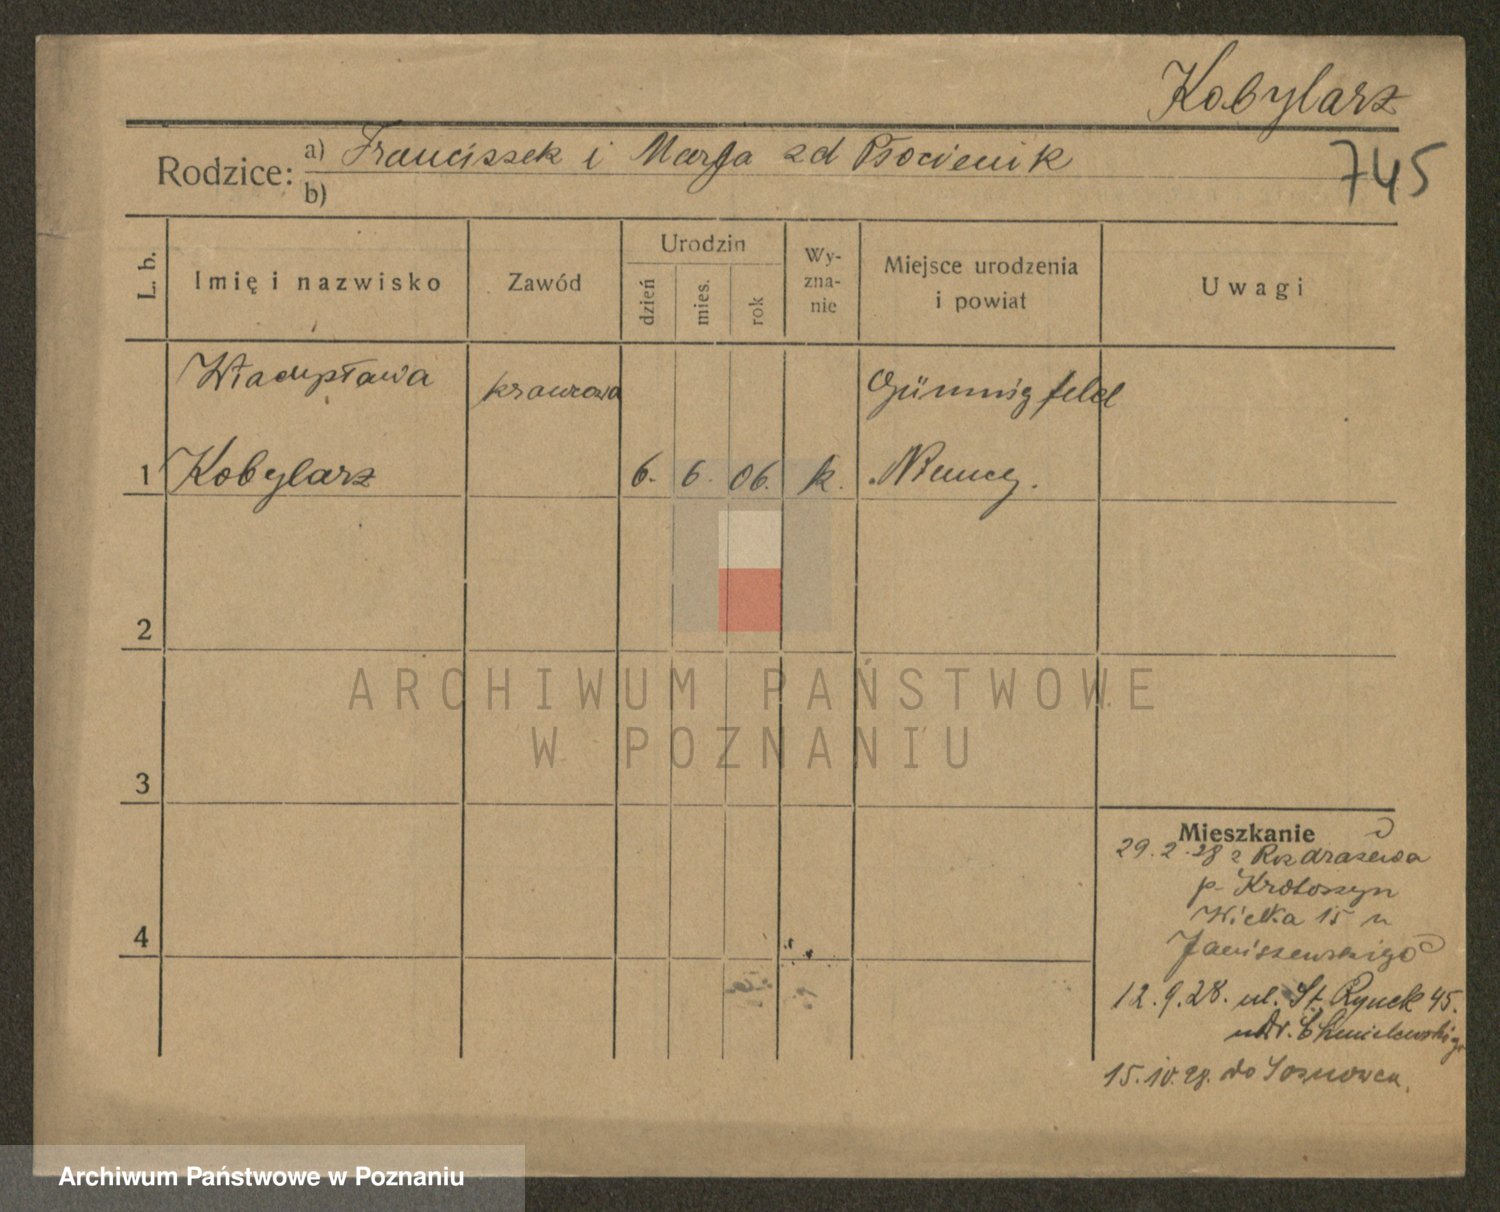 Kobylarz
745
Rodzice: a) Franciszek i Marja zd Psocienik
b)
L. b.
Imię i nazwisko
Zawód
Urodzin
dzień
mies.
rok
Wy-
zna-
nie
Miejsce urodzenia
i powiat
Uwagi
Władysława
krawcowa
Günnigfeld
1 Kobylarz 6. 6. 06. k. Niemcy.
2
3
4
Mieszkanie
29.2.28 z Rozdrażewa
p. Krotoszyn
Wielka 15 u
Janiszewskiego
12.9.28. ul. St. Rynek 45.
u Dr. Chmielewskiego
15.10.28. do Sosnowca.
ARCHIWUM PAŃSTWOWE
W POZNANIU
Archiwum Państwowe w Poznaniu